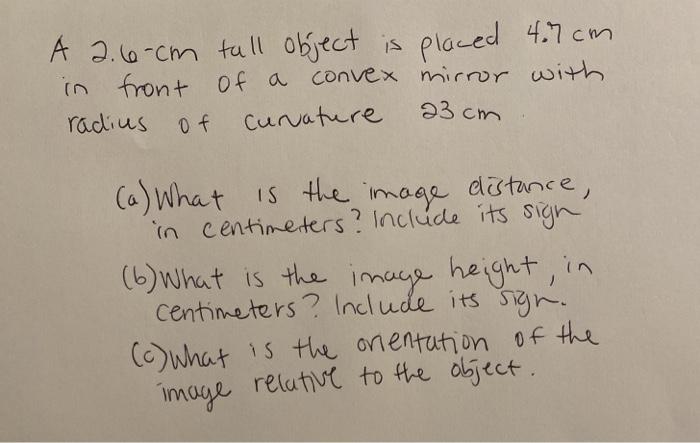 A 2.6-cm tall object is placed 4.7 cm
in front of a convex mirror with
radius of curvature 23 cm
(a) What is the image distance,
in centimeters? Include its sign
(b) What is the image height, in
centimeters? Include its sign.
(c) What is the orientation of the
image relative to the object.